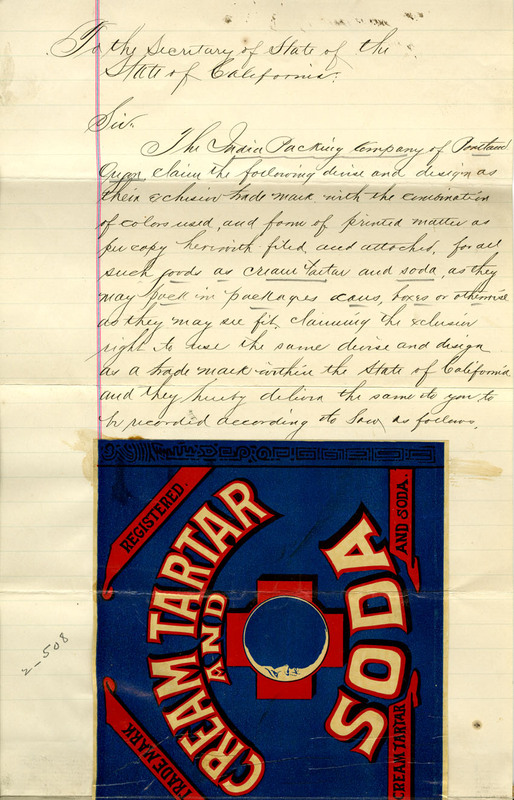 To the Secretary of State of the
State of California:
Sir.
The India Packing Company of Portland
Oregon claim the following devise and design as
their exclusive trade mark with the combination
of colors used, and form of printed matter as
per copy herewith filed and attached, for all
such goods as cream tartar and soda, as they
may pack in packages cans, boxes or otherwise
as they may see fit, claiming the exclusive
right to use the same devise and design
as a trade mark within the State of California
and they hereby deliver the same to you to
be recorded according to Law, as follows,
REGISTERED.
AND SODA.
CREAM TARTAR
AND
SODA
TRADE MARK
CREAM TARTAR
2-508